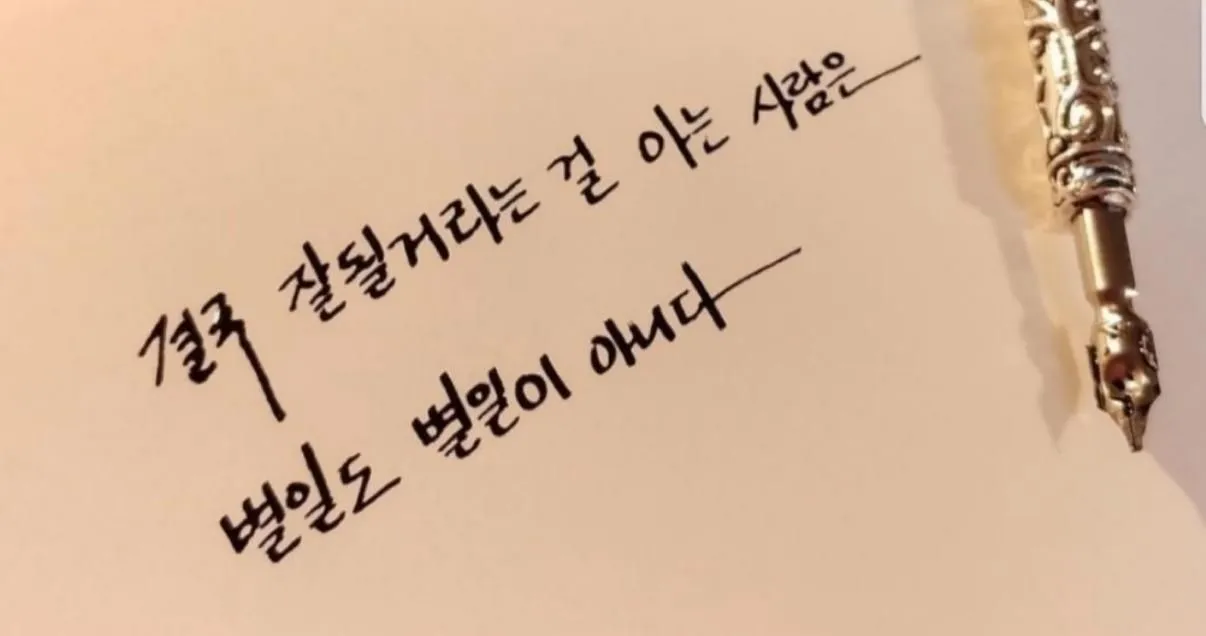 결국 잘될거라는 걸 아는 사람은
별일도 별일이 아니다